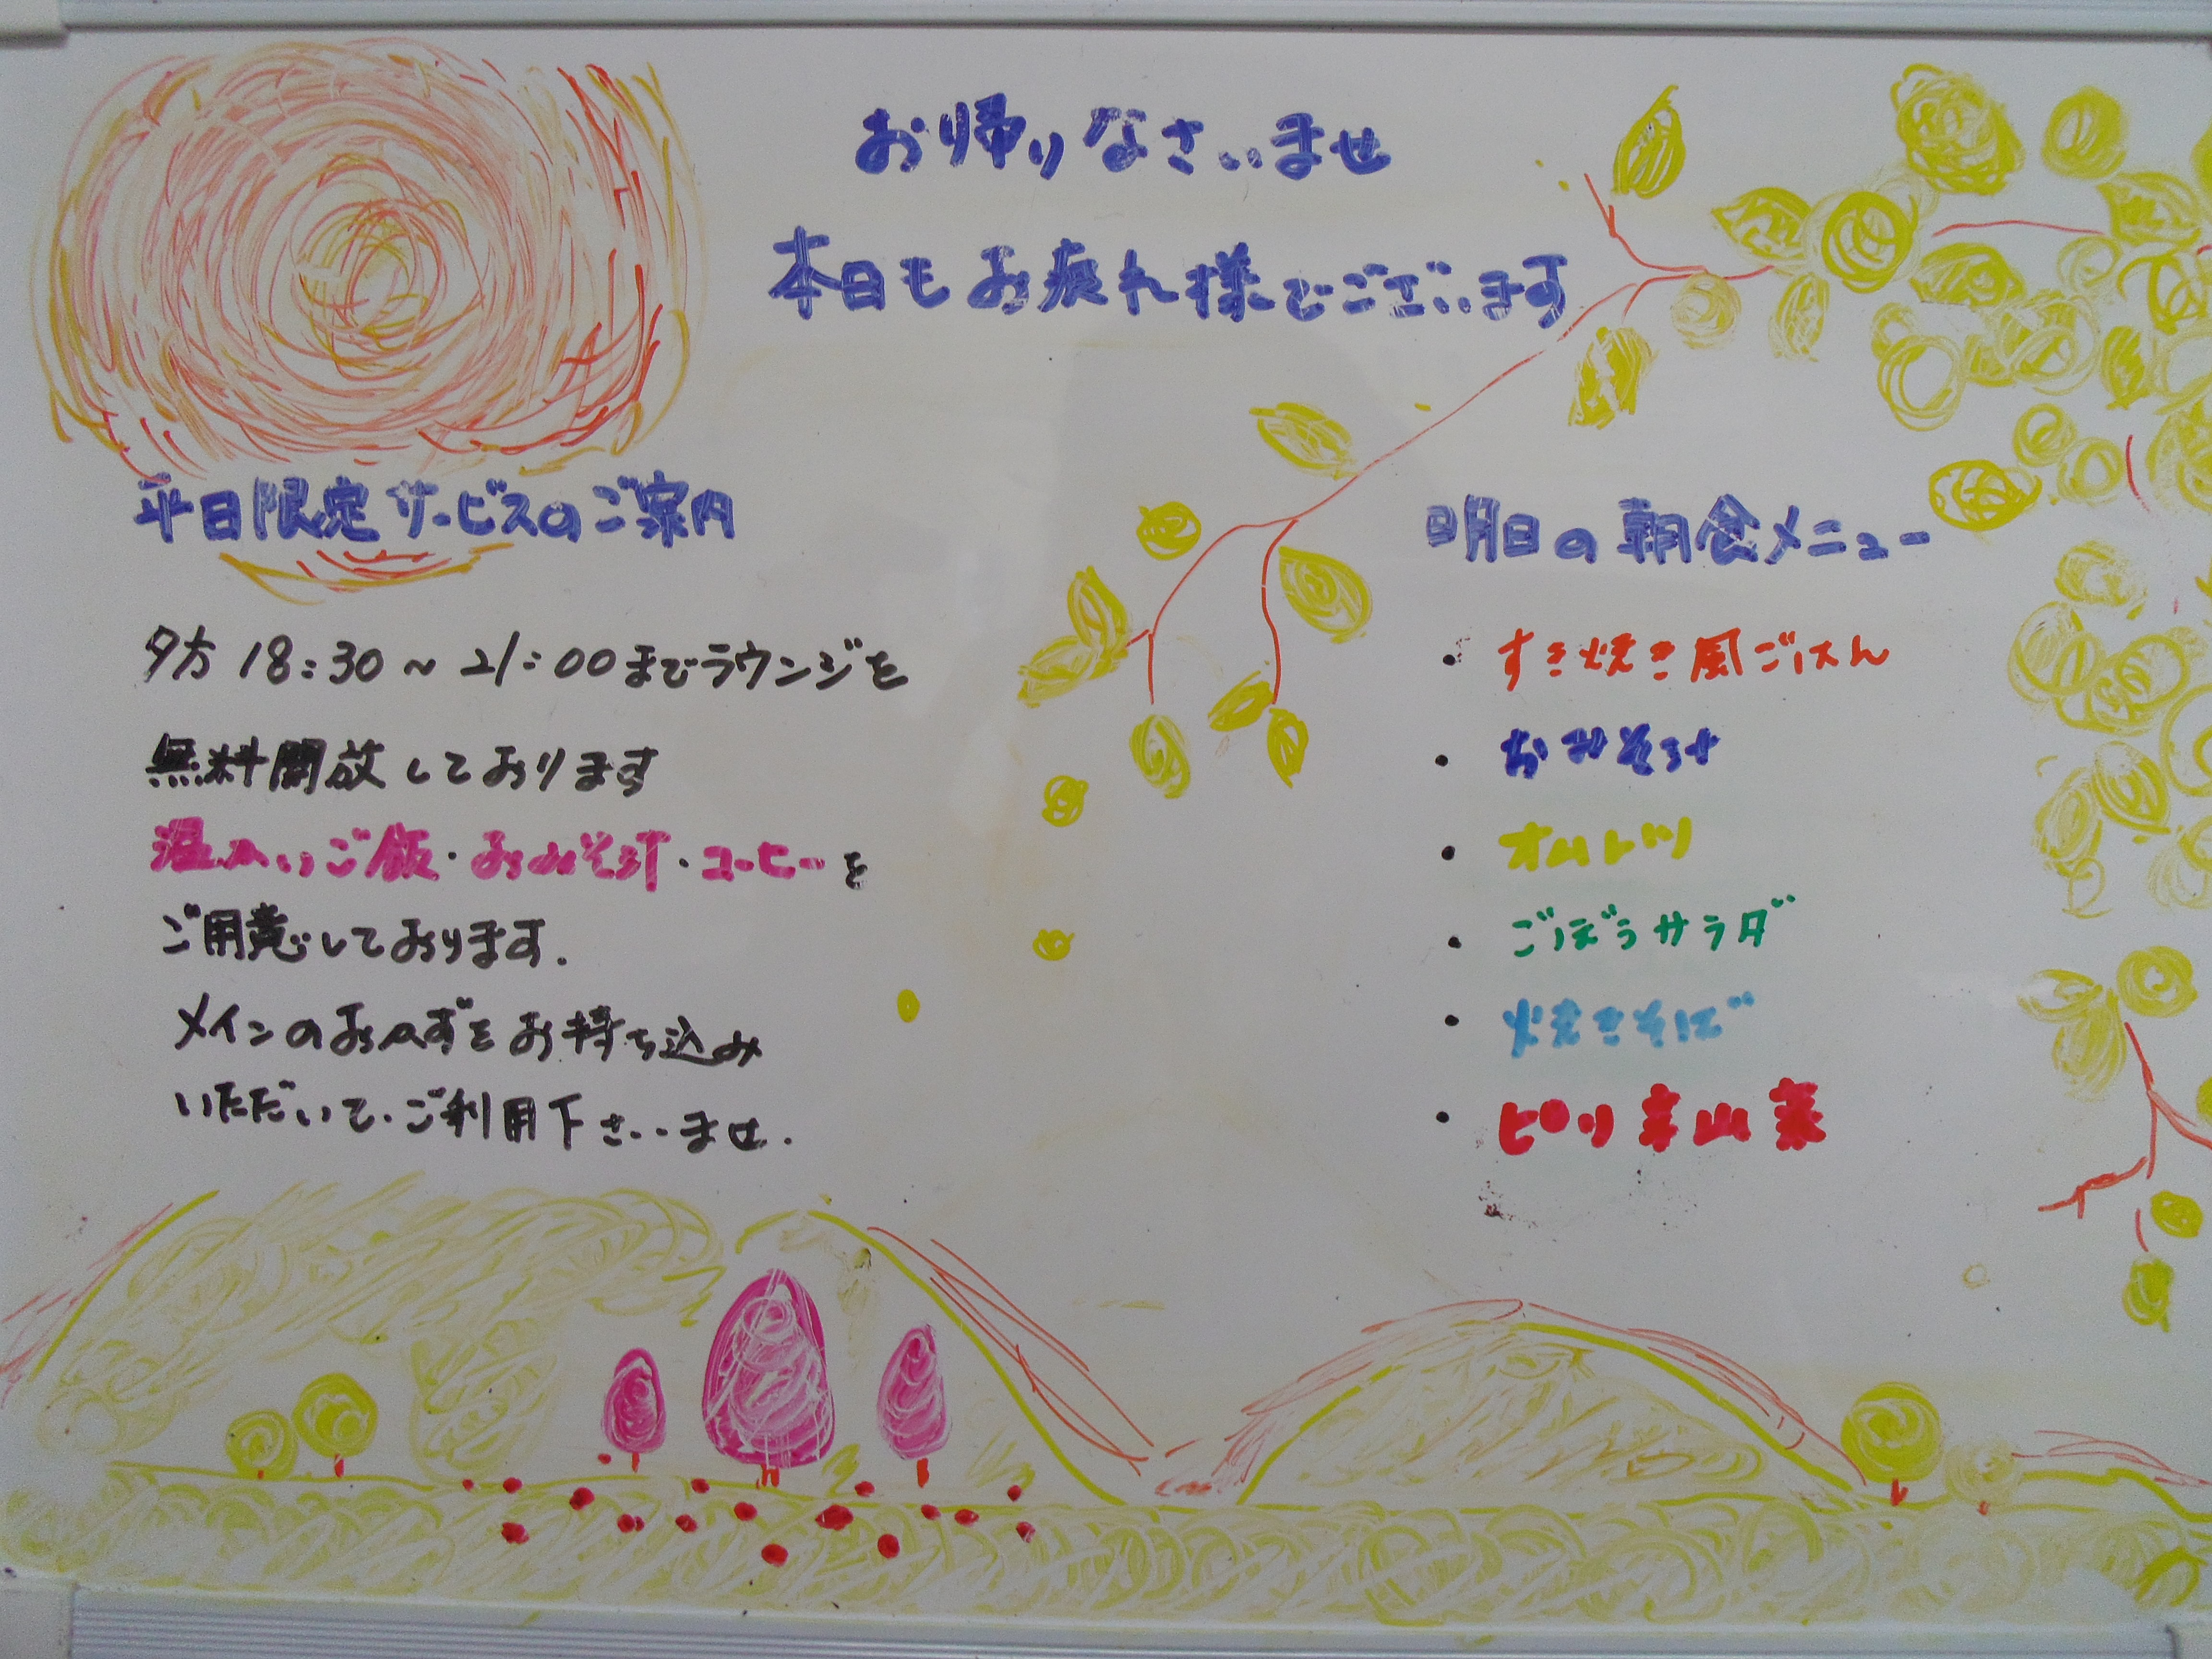 お帰りなさいませ
本日もお疲れ様でございます
平日限定サービスのご案内
夕方 18:30～21:00までラウンジを
無料開放しております
温かいご飯・おみそ汁・コーヒーを
ご用意しております.
メインのおかずをお持ち込み
いただいて、ご利用下さいませ.
明日の朝食メニュー
・すき焼き風ごはん
・おみそ汁
・オムレツ
・ごぼうサラダ
・焼きそば
・ピリ辛山菜